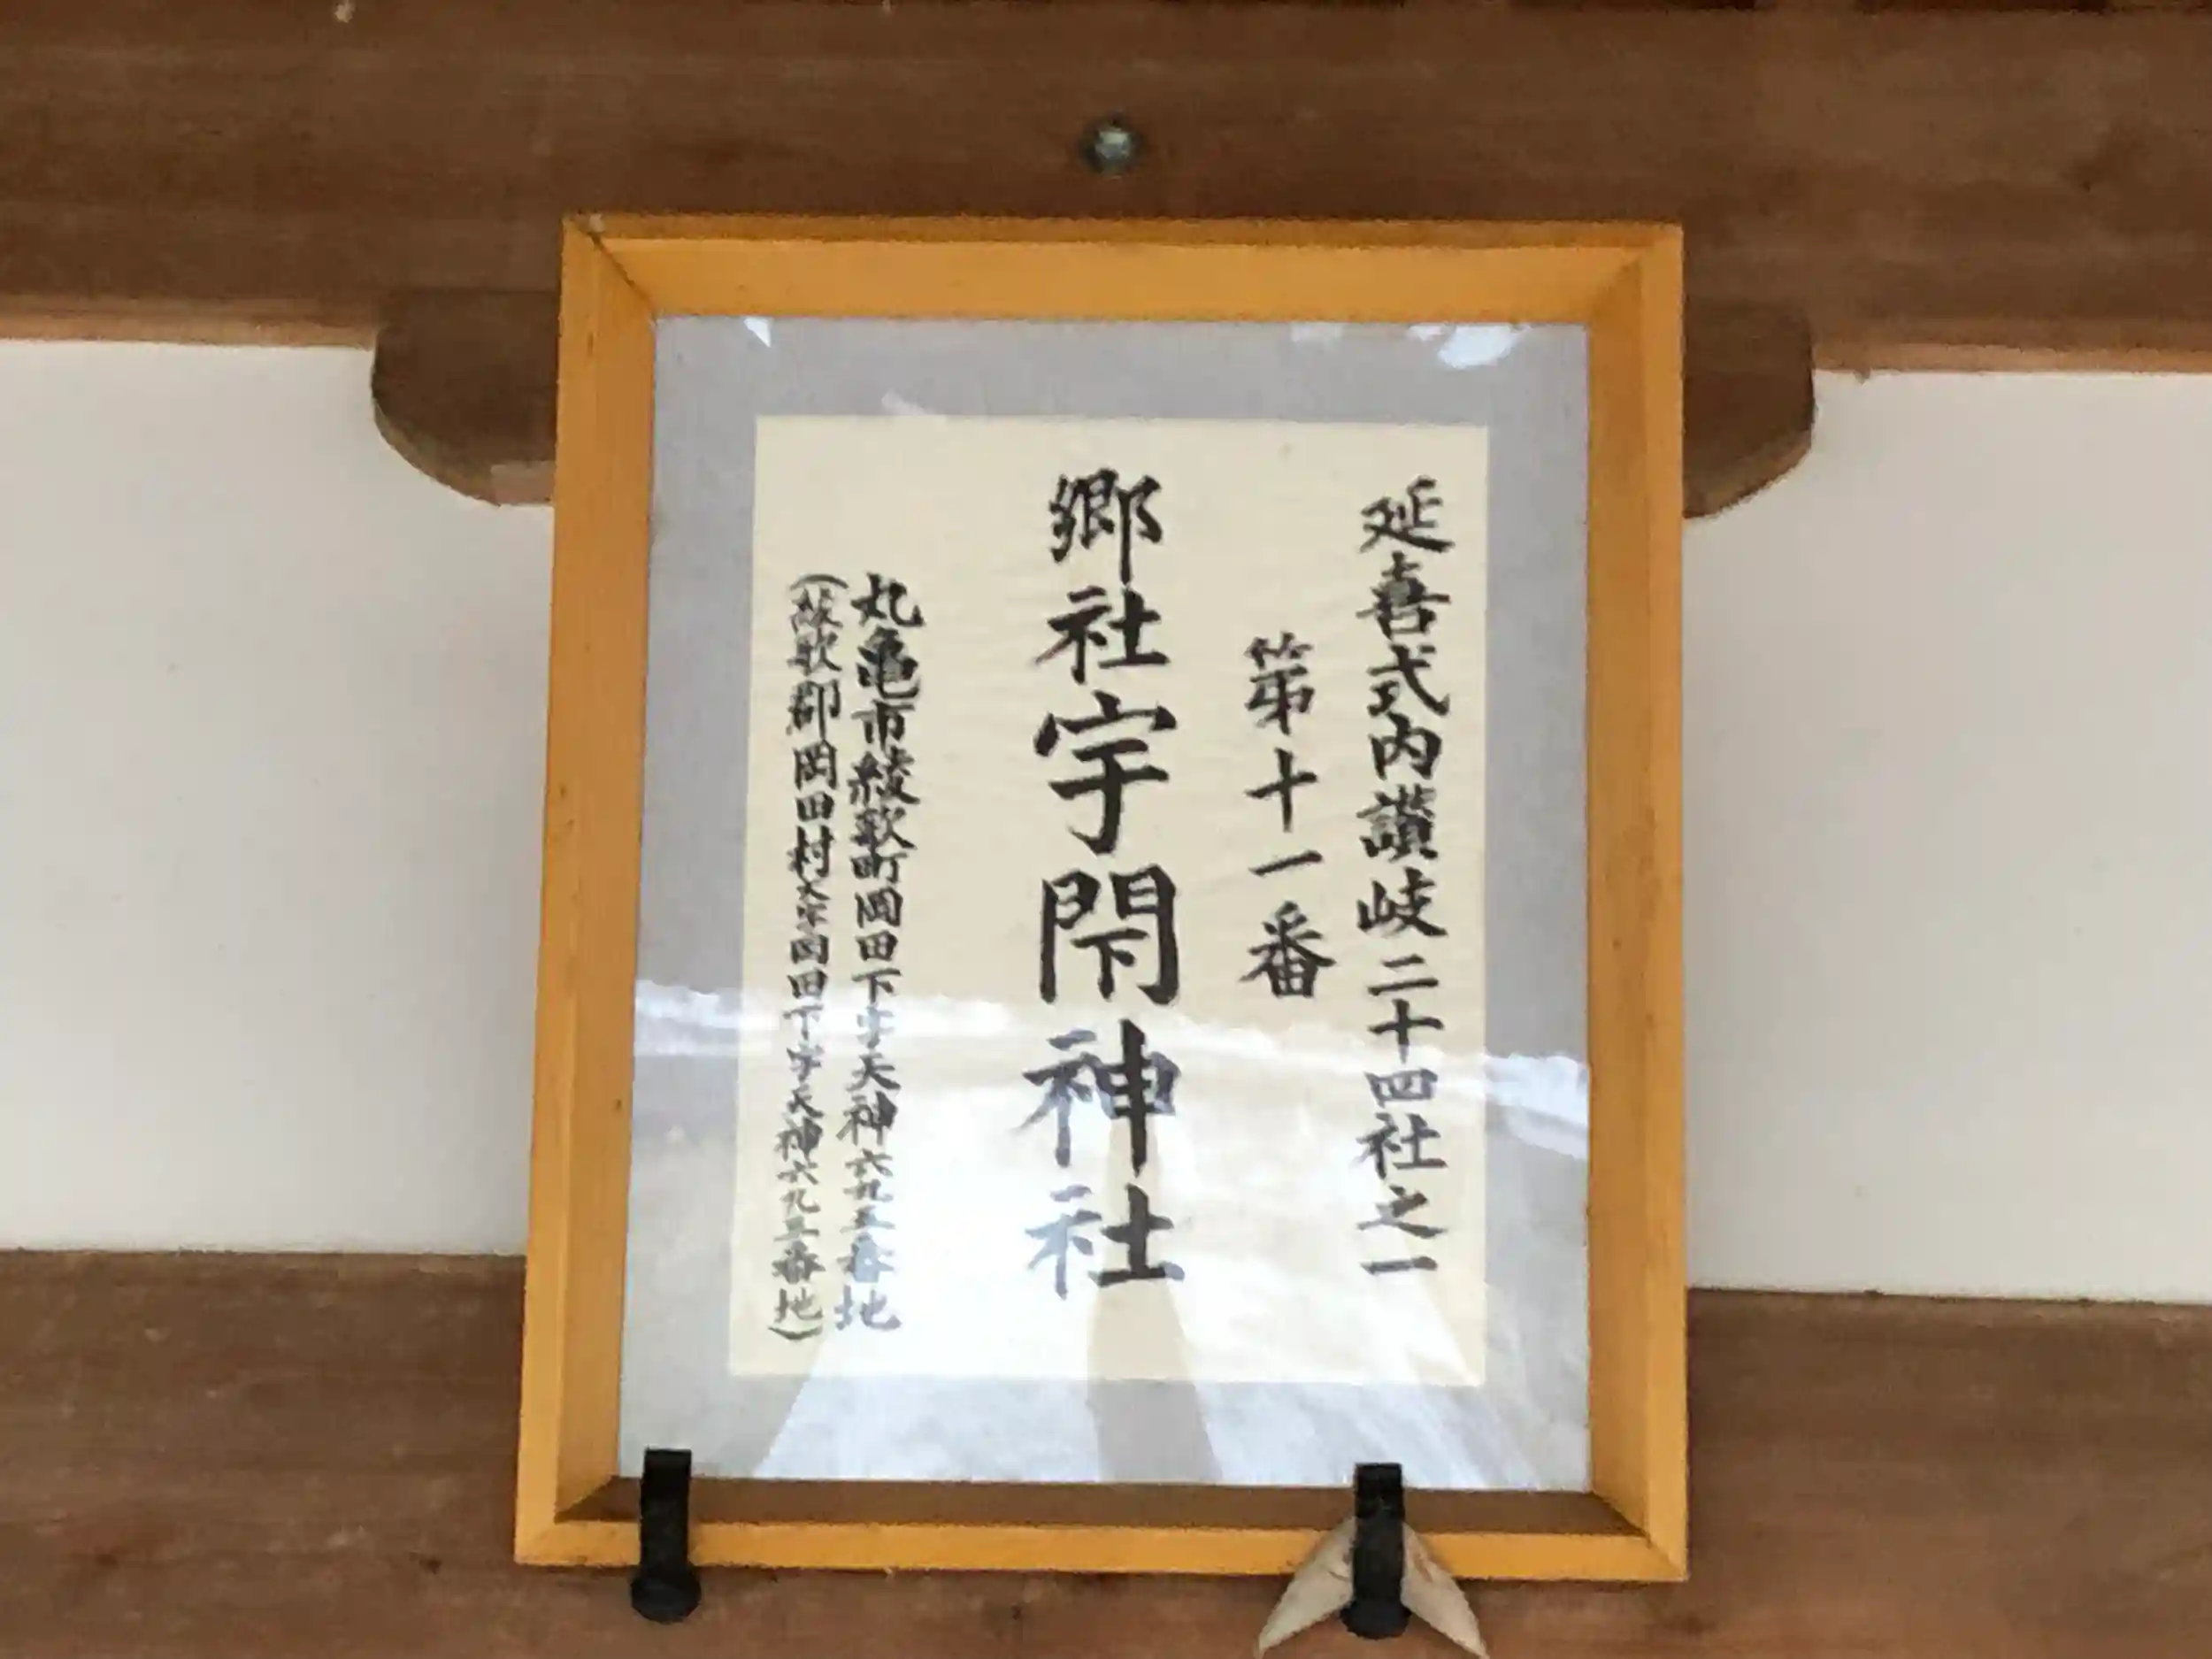 延喜式内讃岐二十四社之一
第十一番
郷社宇閇神社
丸亀市綾歌町岡田下字天神六九三番地
(綾歌郡岡田村大字岡田下字天神六九三番地)